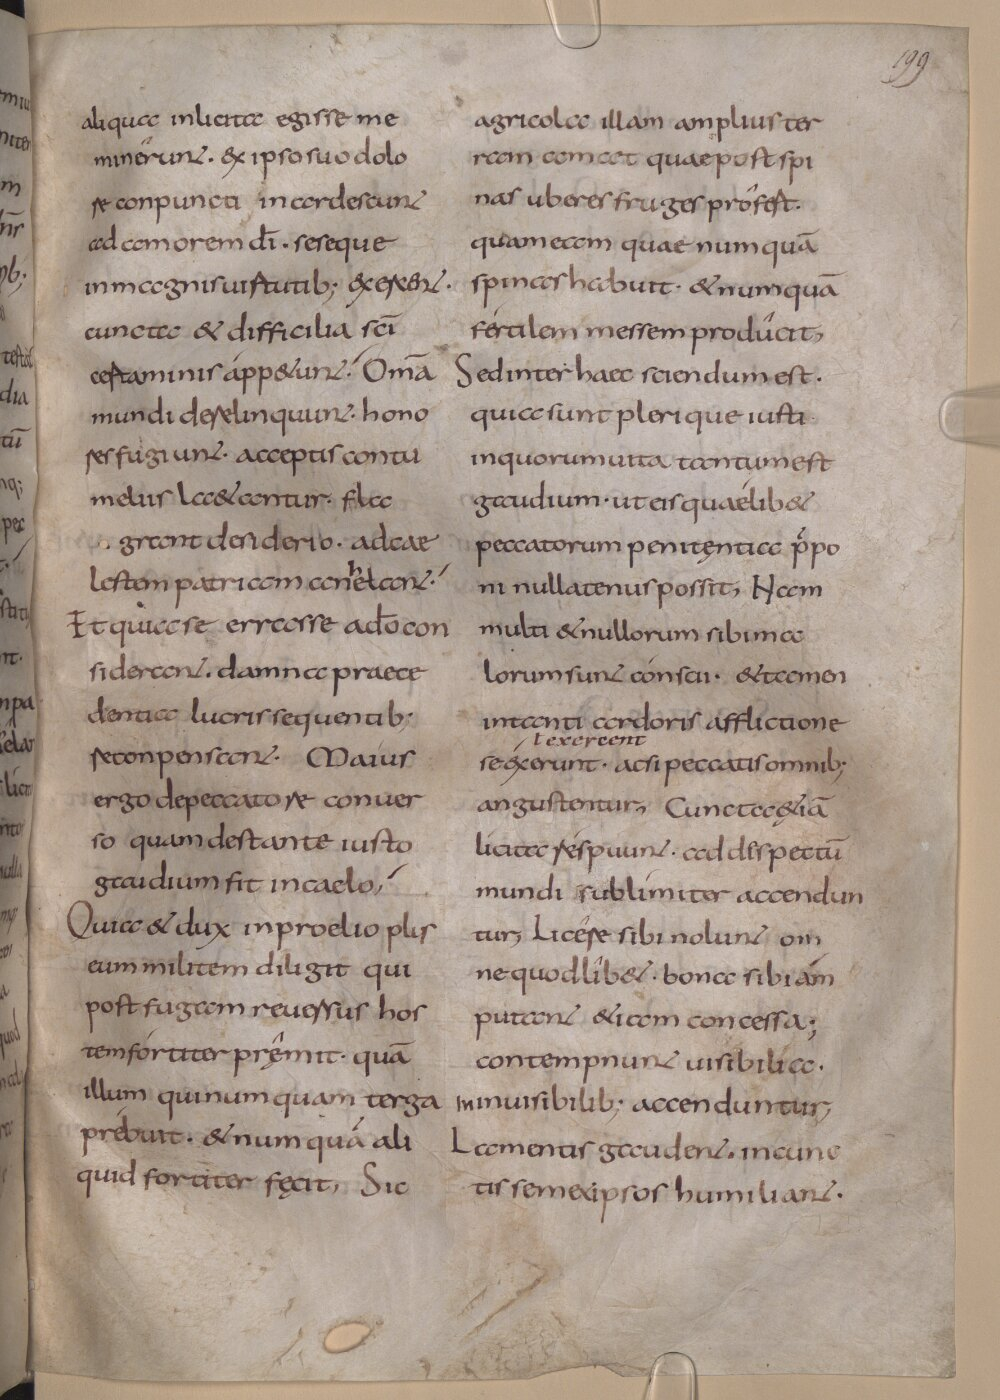 199
aliqua inlicita egisse me
minerunt. & ipso suo dolo
re conpuncti in cordescunt
ad amorem dī. seseque
in magnis uirtutib; exercent.
cuncta & difficilia scī
certaminis appetunt. Omā
mundi derelinquunt. hono
res fugiunt. acceptis contu
meliis laetantur. fla
grant desiderio. ad cae
lestem patriam anhelant.
Et quia se errasse ad̄o con
siderant. damna praece
dentia lucris sequentib;
reconpensant. Maius
ergo de peccatore conuer
so quam de stante iusto
gaudium fit in caelo,
Quia & dux in proelio plus
eum militem diligit qui
post fugam reuersus hos
tem fortiter prẹmit. quā
illum qui numquam terga
prebuit. & numquā ali
quid fortiter fẹcit, Sic
agricola illam amplius ter
ram amat quae post spi
nas uberes fruges profert.
quam eam quae numquā
spinas habuit. & numquā
fertilem messem producit,
Sed inter haec sciendum est.
quia sunt plerique iusti
in quorum uita tantum est
gaudium. ut eis quaelib&
peccatorum penitẹntia p̄po
ni nullatenus possit, Nam
multi & nullorum sibi ma
lorum sunt conscii. & tamen
in tanti ardoris afflictione
ł exercent
se exerunt. ac si peccatis omnib;
angustentur, Cuncta &iā
licita respuunt. ad dispectū
mundi sublimiter accendun
tur, Licere sibi nolunt om
ne quod lib&. bona sibi am
putant &iam concessa;
contempnunt uisibilia.
inuisibilib; accenduntur,
Lamentis gaudent. in cunc
tis semeipsos humiliant.